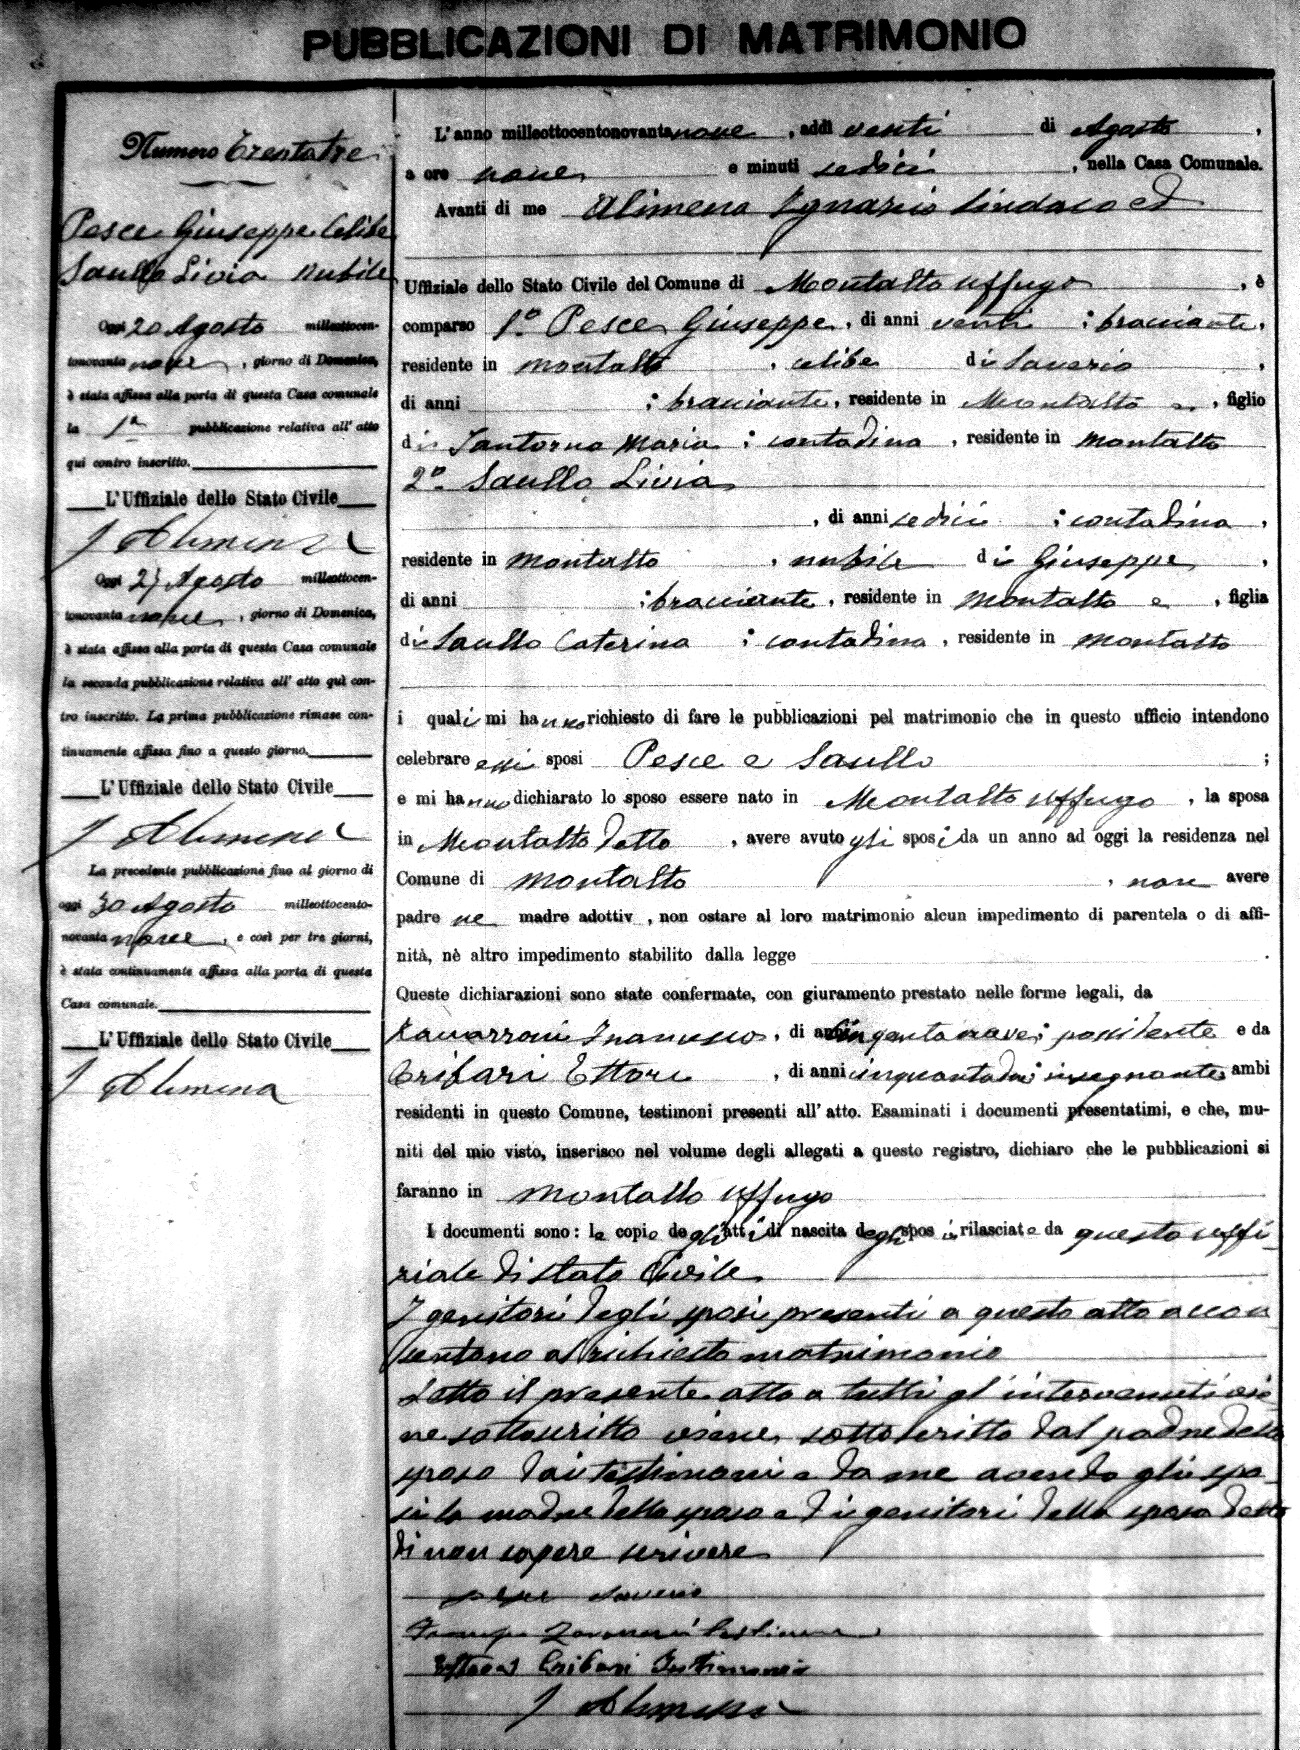 PUBBLICAZIONI DI MATRIMONIO
Numero Trentatre
Pesce Giuseppe celibe
Saullo Livia nubile
Oggi 20 Agosto milleottocen-
tonovanta nove, giorno di Domenica,
è stata affissa alla porta di questa Casa comunale
la 1a pubblicazione relativa all' atto
qui contro inscritto.
L'Uffiziale dello Stato Civile
I Alimena
Oggi 27 Agosto milleottocen-
tonovanta nove, giorno di Domenica,
è stata affissa alla porta di questa Casa comunale
la seconda pubblicazione relativa all' atto quì con-
tro inscritto. La prima pubblicazione rimase con-
tinuamente affissa fino a questo giorno.
L'Uffiziale dello Stato Civile
I Alimena
La precedente pubblicazione fino al giorno di
oggi 30 Agosto milleottocento-
novanta nove, e così per tre giorni,
è stata continuamente affissa alla porta di questa
Casa comunale.
L'Uffiziale dello Stato Civile
I Alimena
L'anno milleottocentonovanta nove, addì venti di Agosto,
a ore nove e minuti sedici, nella Casa Comunale.
Avanti di me Alimena Ignazio Sindaco ed
Uffiziale dello Stato Civile del Comune di Montalto Uffugo, è
comparso 1o Pesce Giuseppe, di anni venti ; bracciante,
residente in Montalto, celibe di Saverio,
di anni ; bracciante, residente in Montalto e, figlio
di Santorno Maria ; contadina, residente in Montalto
2o Saullo Livia
, di anni sedici ; contadina,
residente in Montalto, nubile di Giuseppe,
di anni ; bracciante, residente in Montalto e, figlia
di Saullo Caterina ; contadina, residente in Montalto
i quali mi hanno richiesto di fare le pubblicazioni pel matrimonio che in questo ufficio intendono
celebrare essi sposi Pesce e Saullo ;
e mi hanno dichiarato lo sposo essere nato in Montalto Uffugo, la sposa
in Montalto detto, avere avuto gli sposi da un anno ad oggi la residenza nel
Comune di Montalto, non avere
padre ne madre adottiv , non ostare al loro matrimonio alcun impedimento di parentela o di affi-
nità, nè altro impedimento stabilito dalla legge .
Queste dichiarazioni sono state confermate, con giuramento prestato nelle forme legali, da
Zavarroni Francesco, di anni cinquantanove; possidente e da
Cribari Ettore, di anni cinquantadue; insegnante ambi
residenti in questo Comune, testimoni presenti all' atto. Esaminati i documenti presentatimi, e che, mu-
niti del mio visto, inserisco nel volume degli allegati a questo registro, dichiaro che le pubblicazioni si
faranno in Montalto Uffugo
I documenti sono: le copie degli atti di nascita degli sposi rilasciate da questo uffi-
ziale di stato Civile
I genitori degli sposi presenti a questo atto accon
sentono al richiesto matrimonio
Letto il presente atto a tutti gl'intervenuti vie
ne sottoscritto viene sottoscritto dal padre dello
sposo dai testimoni e da me avendo gli spo
si la madre dello sposo e di genitori della sposa detto
di non sapere scrivere
Pesce Saverio
Zavarroni testimone
Ettore Cribari Testimonio
I Alimena